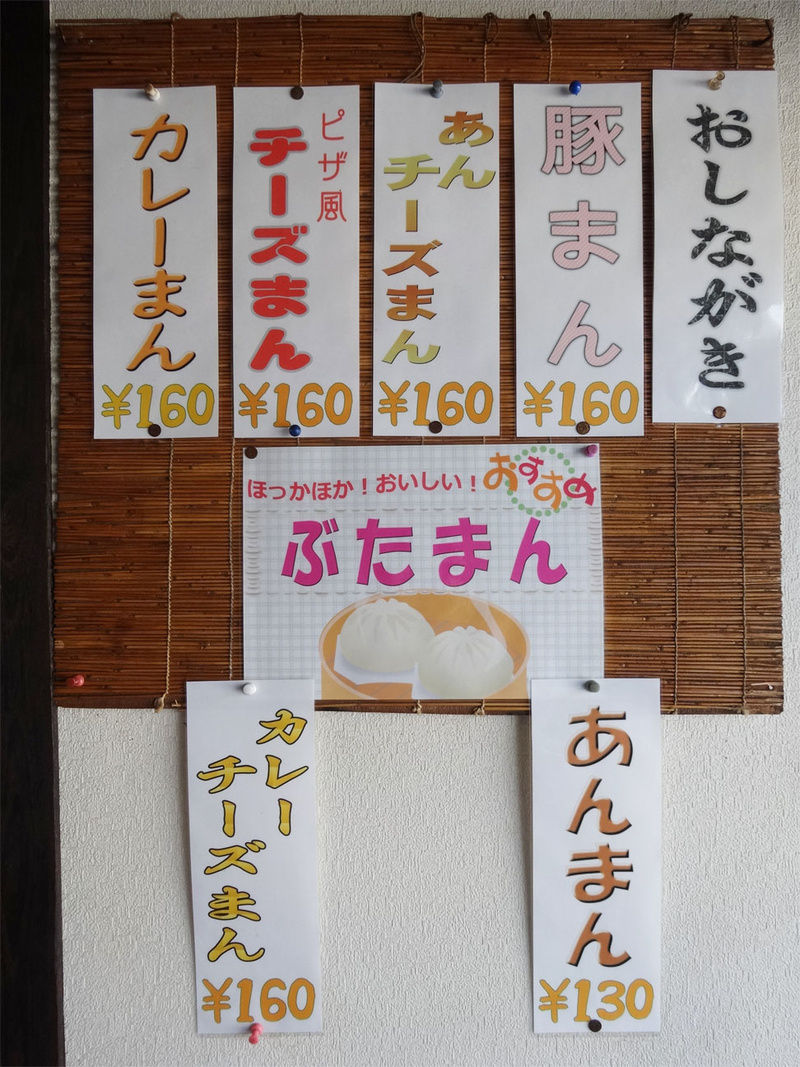 おしながき
豚まん
¥160
あん
チーズまん
¥160
ピザ風
チーズまん
¥160
カレーまん
¥160
ほっかほか！おいしい！
おすすめ
ぶたまん
あんまん
¥130
カレー
チーズまん
¥160